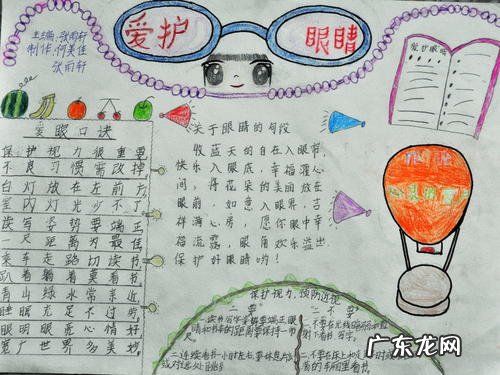 主编：张雨轩
制作：何美佳
张雨轩
爱护
眼睛
爱护眼睛
爱眼口诀
保护视力很重要
不良习惯需改掉
台灯放在左前方
室内灯光少不了
读写姿势要端正
一尺距离为最佳
乘车走路切读书
趴着躺着莫看书
青山绿水常亲近
睡眠充足不过劳
眼明眼亮心情好
宽广世界多美妙
关于眼睛的句段
收蓝天的自在入眼帘，
快乐入眼底，幸福灌心
间，得花朵的美丽放在
眼前，如意入眼界，吉
祥满心房，愿你眼中幸
福流露，眼角欢乐溢出
保护好眼睛哟！
保护视力，预防近视
"二要"
"二不要"
一、读书写字姿势要端正，眼
睛和书本的距离要保持一市
尺。
二、连续看书一小时左右要休息片刻
或对远处目眺
射下看书、写字。
二、不要在床上和走
的车厢里看书
广东龙网